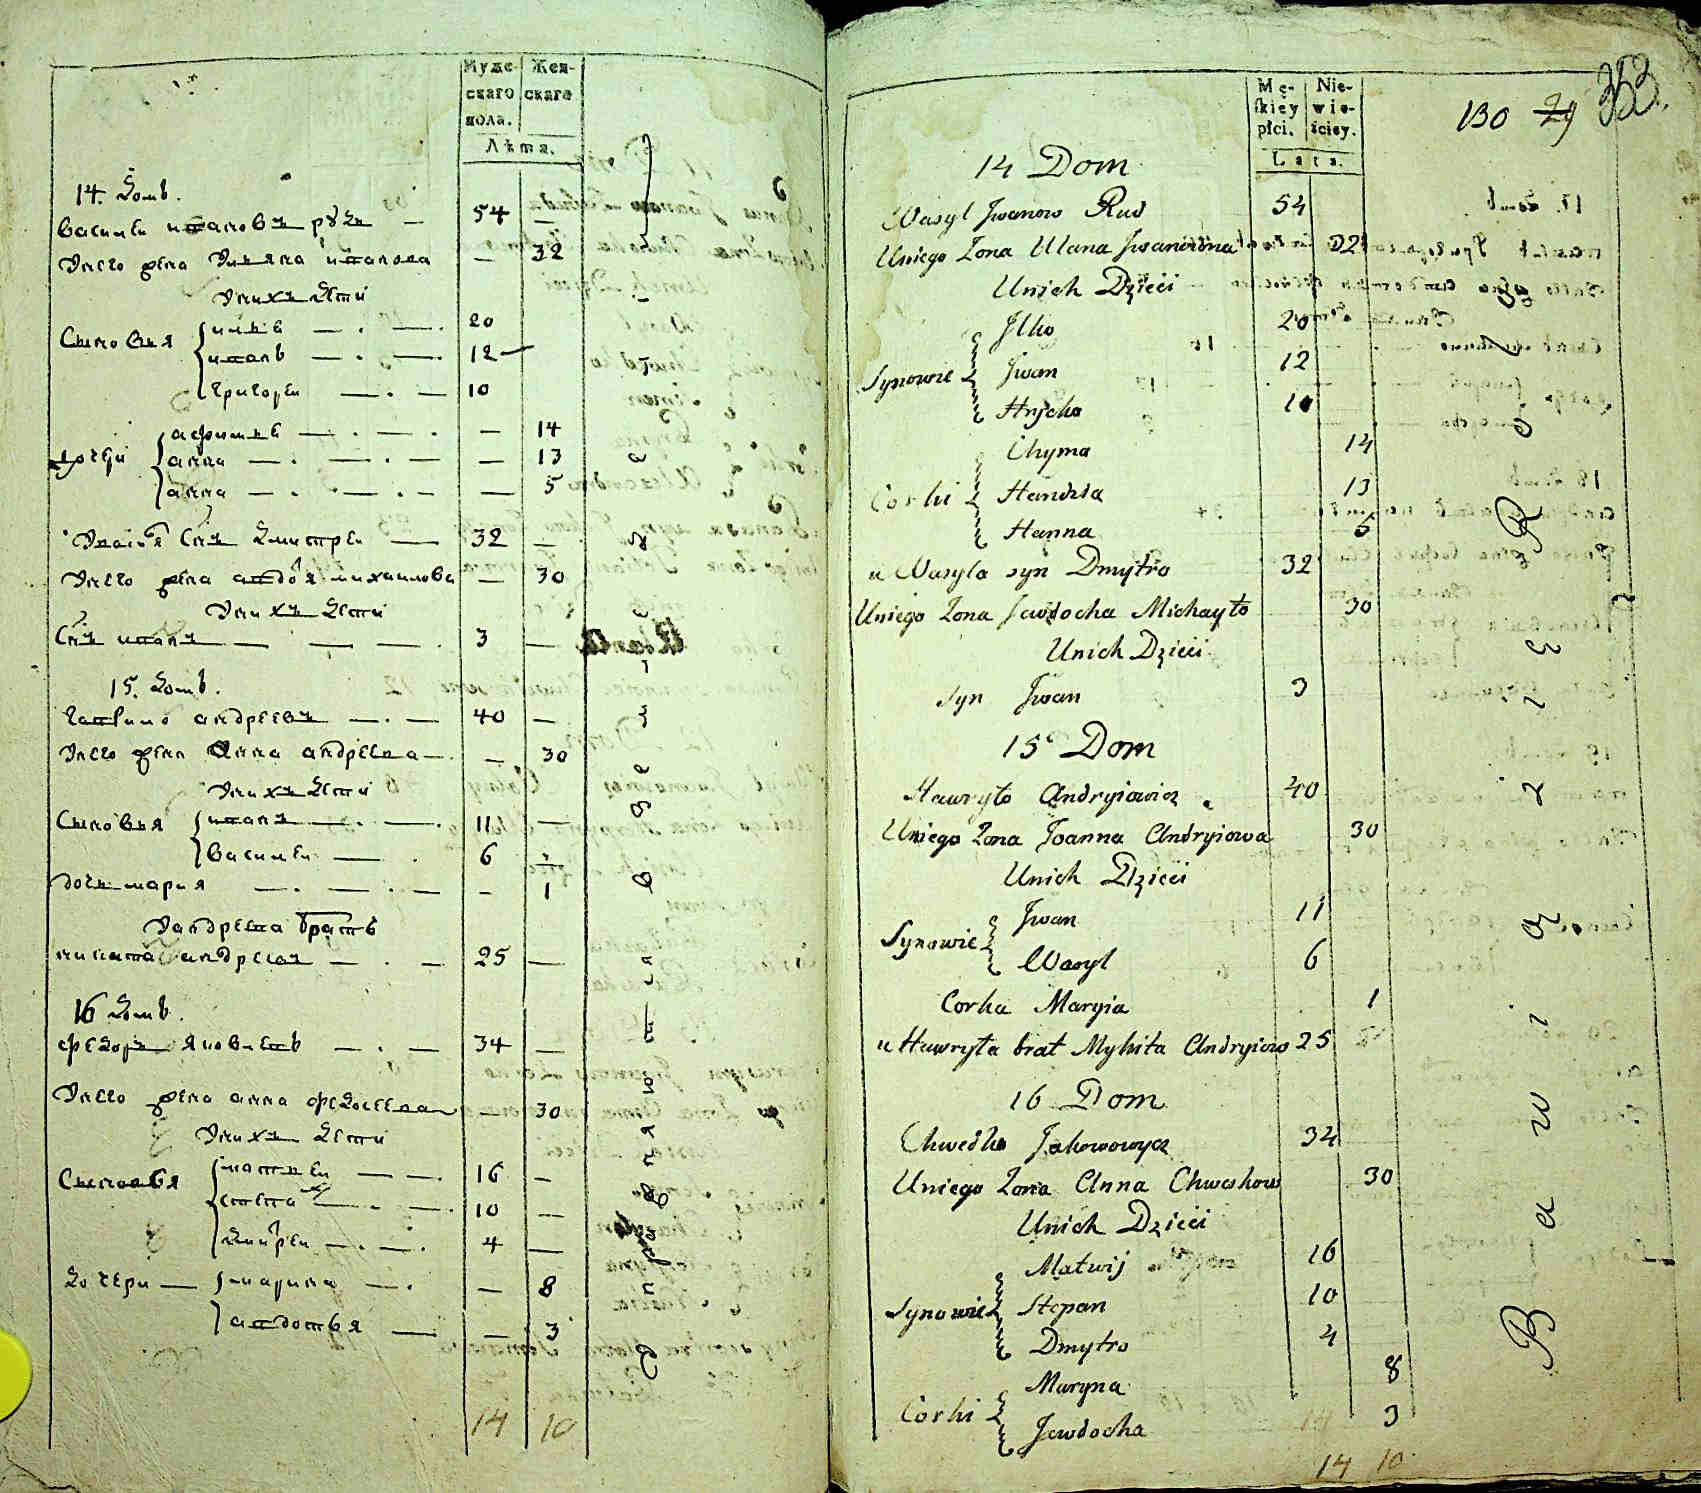 Муже-
скаго
пола.
Жен-
скаго
Лѣта.
14. Домъ.
василей ивановъ рудъ — 54 —
Унего жена Уляна иванова — 32
Унихъ дѣти
Сыновья
илко — . — . 20
иванъ — . — . 12
григорей — . — 10
дочери
афимья — . — . — 14
анна — . — . — — 13
анна — . — . — — 5
Сынъ Дмитрей — 32 —
Унего жена авдотья михаилова — 30
Унихъ дѣти
Сынъ иванъ — — — . 3 —
15. Домъ.
гаврило андреевъ — . — 40 —
Унего жена Анна андреева — . — 30
Унихъ дѣти
Сыновья
иванъ — . — . 11 —
василей — . 6
дочь мария — . — . — — 1
Уандреева братъ
никита андреевъ — . — 25 —
16 Домъ.
федоръ яковлевъ — . — 34 —
Унего жена анна — 30
Унихъ дѣти
Сыновья
матвей — — 16 —
10 —
дмитрей — . — . 4 —
дочери —
марина — . — 8
авдотья — — 3
14 10
Mę-
skiey
płci.
Nie-
wie-
ściey.
Lata.
130 29 353.
14 Dom
Wasyl Jwanow Rud 54
Uniego Zona Ulana Jwanowna 32
Unich Dzieci
Synowie
Jlko 20
Jwan 12
Hryćko 10
Corki
Chyma 14
Handzia 13
Hanna 5
u Wasyla syn Dmytro 32
Uniego Zona Jewdocha Michayło 30
Unich Dzieci
syn Jwan 3
15 Dom
Hawryło Andryiowicz 40
Uniego Zona Joanna Andryiowa 30
Unich Dzieci
Synowie
Jwan 11
Wasyl 6
Corka Maryia 1
u Hawryła brat Mykita Andryiow 25
16 Dom
Chwedko Jakowowycz 34
Uniego Zona Anna Chweskowa 30
Unich Dzieci
Synowie
Matwij 16
Stepan 10
Dmytro 4
Corki
Maryna 8
Jewdocha 3
14 10